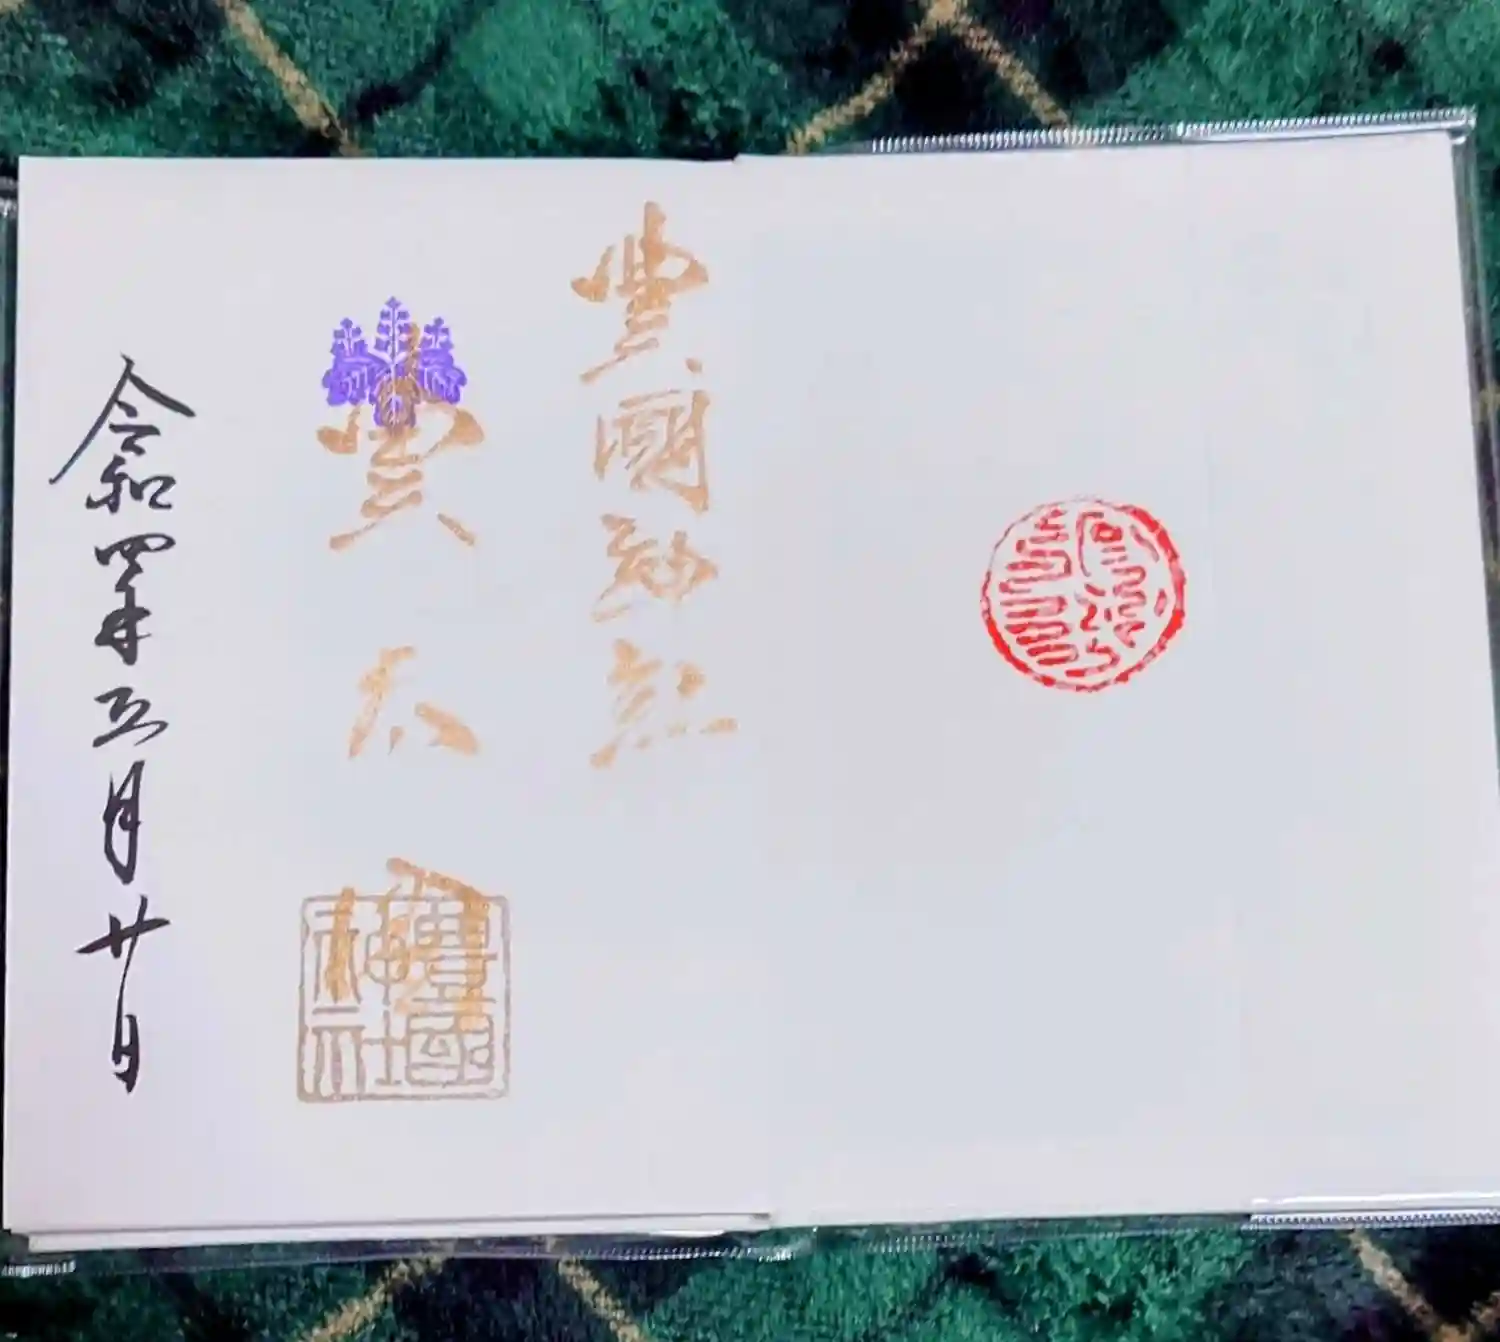 豊國神社
豊太閤
豊國神社
令和四年五月廿日